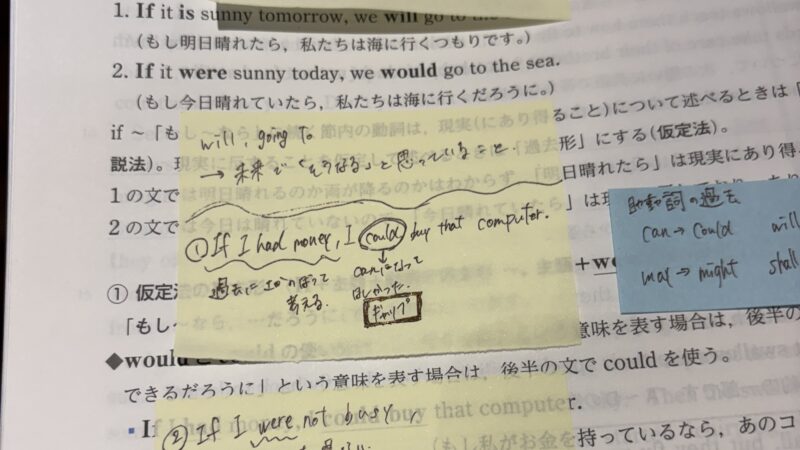 1. If it is sunny tomorrow, we will go to the
(もし明日晴れたら，私たちは海に行くつもりです。)
2. If it were sunny today, we would go to the sea.
(もし今日晴れていたら，私たちは海に行くだろうに。)
if ～「も
節内の動詞は，現実(にあり得ること)について述べるときは「
説法)。現
形」にする(仮定法)。
1の文で
明日晴れたら」は現実にあり得
2の文で
は現
will, going to
→ 未来で「そうなる」と思っていること.
① If I had money, I could buy that computer.
過去にさかのぼって
考える.
canになって
ほしかった.
ギャップ
助動詞の過去
can → could will
may → might shall
① 仮定法
「もし～
意味を表す場合は，後半の
◆would と could の使い
できるだろうに」という意味を表す場合は，後半の文で could を使う。
If
that computer.
持っているなら，あのコ
② If I were not busy,